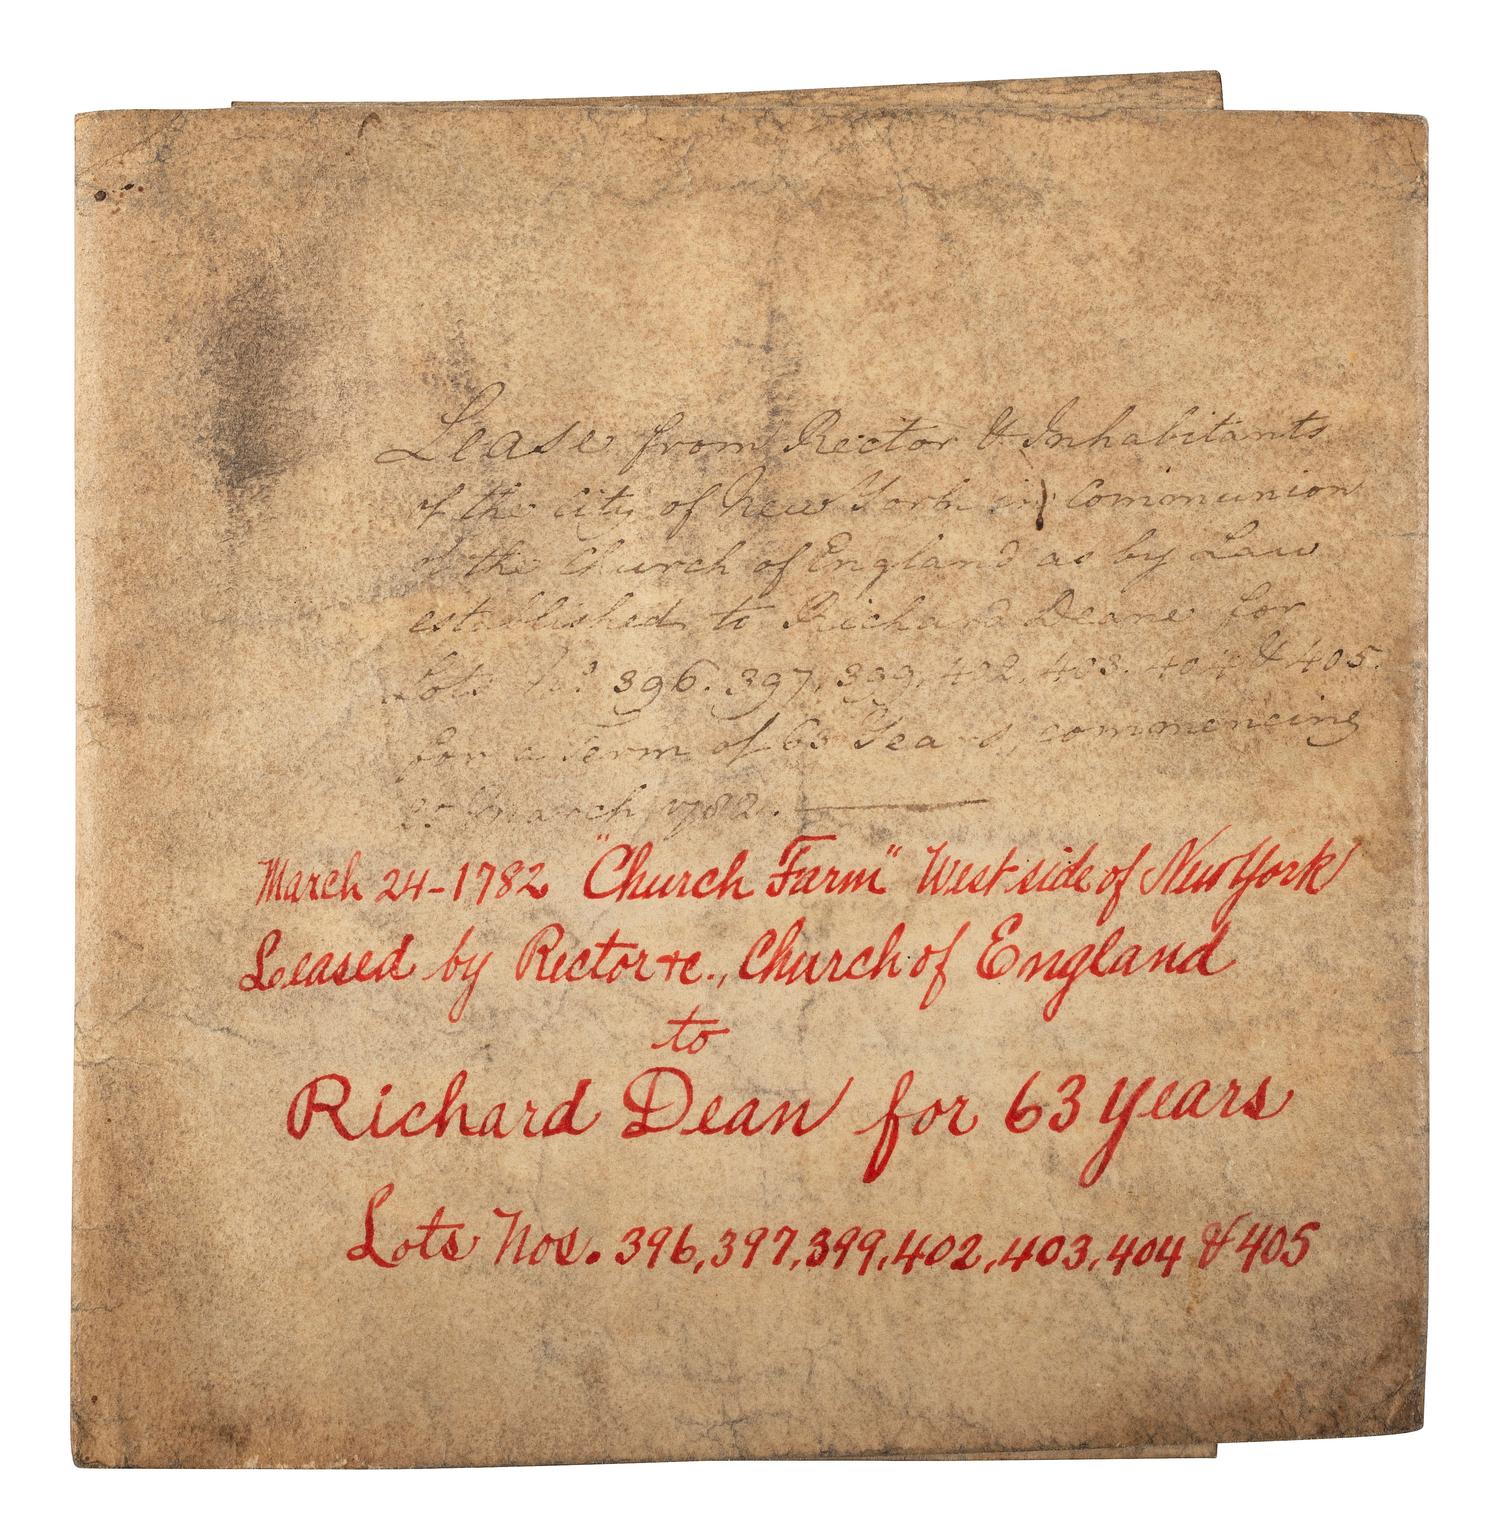 Lease from Rector & Inhabitants
of the city of New York in Communion
of the Church of England as by Law
established to Richard Deane for
Lots No.s 396. 397, 399, 402, 403. 404 & 405.
for a Term of 63 Years, commencing
25 March 1782.
March 24-1782 "Church Farm" West side of New York
Leased by Rector &c., Church of England
to
Richard Dean for 63 years
Lots Nos. 396, 397, 399, 402, 403, 404 & 405